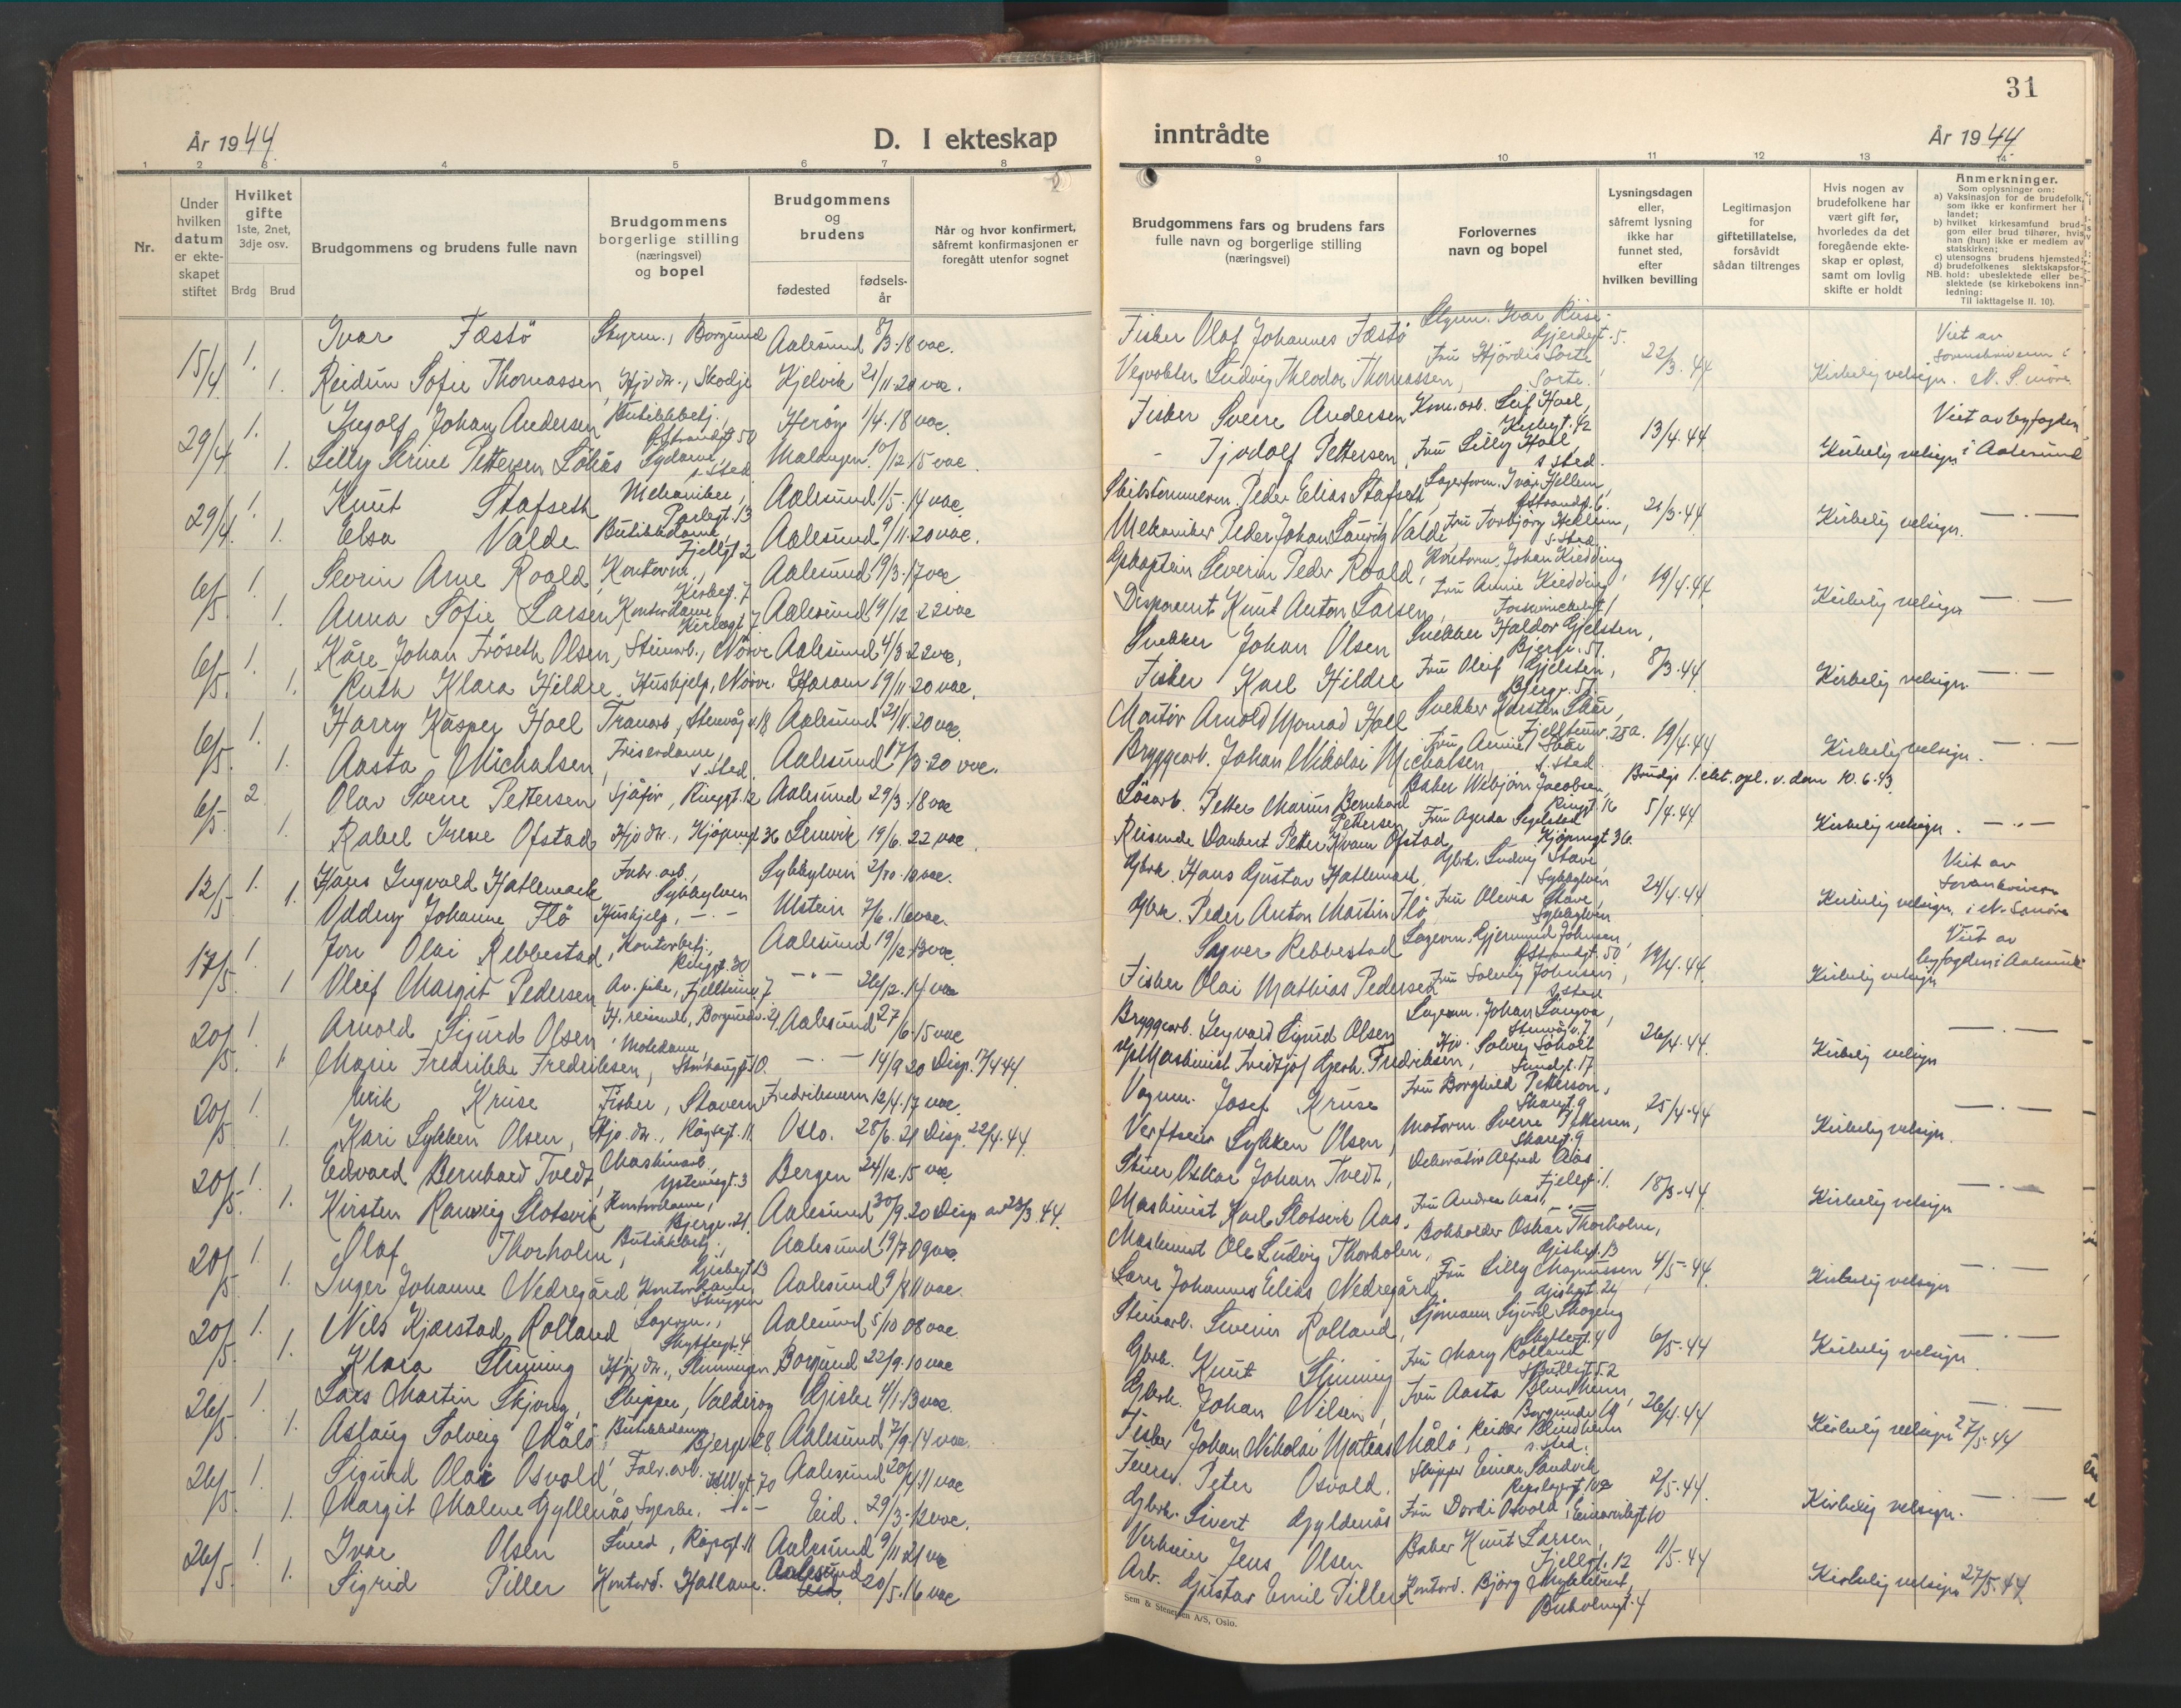 31
År 1944
D. I ekteskap
inntrådte
År 1944
1 2 3 4 5 6 7 8 9 10 11 12 13 14
Nr.
Under hvilken datum er ekteskapet stiftet
Hvilket gifte 1ste, 2net, 3dje osv.
Brdg Brud
Brudgommens og brudens fulle navn
Brudgommens borgerlige stilling (næringsvei) og bopel
Brudgommens og brudens
fødested
fødselsår
Når og hvor konfirmert, såfremt konfirmasjonen er foregått utenfor sognet
Brudgommens fars og brudens fars fulle navn og borgerlige stilling (næringsvei)
Forlovernes navn og bopel
Lysningsdagen eller, såfremt lysning ikke har funnet sted, efter hvilken bevilling
Legitimasjon for giftetillatelse, forsåvidt sådan tiltrenges
Hvis nogen av brudefolkene har vært gift før, hvorledes da det foregående ekteskap er opløst, samt om lovlig skifte er holdt
Anmerkninger.
Som oplysninger om:
a) Vaksinasjon for de brudefolk, som ikke er konfirmert her i landet;
b) hvilket kirkesamfund brudgom eller brud tilhører, hvis han (hun) ikke er medlem av statskirken;
c) utensogns brudens hjemsted;
d) brudefolkenes slektskapsforhold: ubeslektede eller beslektede (se kirkebokens innledning:
NB.
Til iakttagelse II. 10).
15/4 1. Ivar Fæstö Styrm., Borgund Aalesund 8/3-18 vac. Fisker Olaf Johannes Fæstö Styrm. Ivar Riise Gjerdegt. 5. 22/3.44 Viet av
1. Reidun Sofie Thomassen, Hj. dr., Skodje Kjelvik 21/11-20 vac. Vegvokter Ludvig Theodor Thomassen, Fru Hjördis Sorte Sorte. Kirkelig velsign. Sorenskriveren i N. S.möre
29/4 1. Ingolf Johan Andersen Butikkbetj., Heröy 1/4.18 vac. Fisker Sverre Andersen Kom.arb. Leif Hoel, Kirkegt. 42 13/4.44 Viet av byfogden
1. Lilly Strine Pettersen Sydame, s. sted 10/12.15 vac. - Tjodolf Pettersen, Fru Lilly Hoel, s. sted. Kirkelig velsign i Aalesund
29/4 1. Knut Stafseth Mekaniker, Parkgt. 13 Aalesund 1/5.14 vac. Skibstømmerm. Peder Elias Stafseth, Lagerform. Ivar Hellem, 21/3.44
1. Elsa Valde Butikkdame, Fjellgt. 2 Aalesund 9/11.20 vac. Mekaniker Peder Johan Lauritz Valde, Fru Torbjörg Hellem, s. sted Kirkelig velsign. — . —
6/5 1. Severin Arne Roald, Kontorm., Kirkegt. 7 Aalesund 19/3.17 vac Severin Peder Roald, Kontorm. Johan Kiedding, 19/4.44
1. Anna Sofie Larsen, Kontordame, Kirkegt. 7 Aalesund 19/12 22 vac Disponent Knut Anton Larsen, Fru Annie Kiedding Kirkelig velsign — . —
6/5 1. Kåre Johan Fröseth Olsen, Steinarb., Nörve Aalesund 4/3 22 vac. Snekker Johan Olsen Snekker Haldor Gjelsten, Bjergv. 57 8/3.44
1. Ruth Klara Hildre, Hushjelp, Nörve Haram 19/11-20 vac. Fisker Karl Hildre Fru Oleif Gjelsten, Bjergv. 57 Kirkelig velsign. — . —
6/5 1. Harry Kasper Hoel Tranarb., Stenvåg v. 18 Aalesund 21/11.20 vac. Montör Arnold Monrad Hoel Snekker Karsten Skår, Fjelltunv. 25 a. 19/4.44
1. Aasta Michalsen, Friserdame, s. sted. Aalesund 17/3-20 vac. Bryggearb. Johan Nikolai Michalsen, Fru Annie Skår s. sted. Kirkelig velsign. — . —
6/5 2 Olav Sverre Pettersen Sjåför, Ringgt. 12 Aalesund 29/3.18 vac Lösarb. Petter Marius Bernhard Pettersen Baker Webjörn Jacobsen, Ringgt. 16 Brudgs 1. ekt. opl. v. dom 10.6.43. 5/4.44
1. Rakel Irene Ofstad Hj. dr., Kjöpmgt 36 Lenvik 19/6.22 vac. Reisende Daubert Petter Kvam Ofstad Fru Agerda Segelstad Kjöpmgt 36. Kirkelig velsign. — . —
12/5 1. Hans Ingvald Hatlemark Fabr. arb., Sykkylven Sykkylven 2/10.10 vac. Gbrk. Hans Gustav Hatlemark, Gbrk. Ludvig Stave, Sykkylven 24/4.44 Viet av Sorenskriveren
1. Oddny Johanne Flö Hushjelp, — . — Ulstein 7/6.16 vac. Gbrk. Peder Anton Martin Flö Fru Olevia Stave, Sykkylven Kirkelig velsign. i N. Sunmöre
17/5 1. Jon Olai Rebbestad, Kontorbetj., Ringgt. 30 Aalesund 19/12.13 vac. Sagver Rebbestad Lagerm. Gjermund Johnsen, 19/4.44 Viet av
1 Oleif Margit Pedersen Av. pike, Fjelltunv. 7 — " — 26/12.14 vac Fisker Olai Mathias Pedersen Fru Solveig Johnsen, s. sted Kirkelig velsign byfogden i Aalesund
20/5 1. Arnold Sigurd Olsen H. reisende, Borgundv. 21. Aalesund 27/6.15 vac Bryggearb. Ingvald Sigurd Olsen Lagerm. Johan Langva, Stenvåg v. 7 26/4.44
1. Marie Fredrikke Fredriksen, Motedame, Storhaugt 10. — . — 14/9 20 Disp. 17/4 44. Maskinist Fridtjof Gerh. Fredriksen, Hj. Solveig Söholt Sundgt. 17 Kirkelig velsign — . —
20/5 1. Erik Kruse Fisker, Stavern Fredriksvern 12/4.17 vac. Vognm. Josef Kruse Fru Borghild Petterson, Skaregt. 9 25/4.44
1. Kari Lykken Olsen, Hj. dr., Rögegt. 11 Oslo. 28/6.21 Disp. 22/4.44. Verftseier Lykken Olsen, Motorm. Sverre Pettersen, Skaregt. 9 Kirkelig velsign. — . —
20/5 1. Edvard Bernhard Tvedt, Maskinarb., Ystenesgt. 3 Bergen 24/12.15 vac Stuer Oskar Johan Tvedt, Dekoratör Alfred Aas Fjellgt. 1. 18/3.44
1. Kirsten Ranveig Slotsvik Kontordame, Bjergv. 21. Aalesund 30/9.20 Disp. av 23/3.44. Maskinist Karl Slotsvik Aas. Fru Andrea Aas, Kirkelig velsign — . —
20/5 1. Olaf Thorholm, Butikkbetj., Giskegt 13 Aalesund 19/7 09 vac. Maskinist Ole Ludvig Thorholm, Bokholder Oskar Thorholm, Giskegt. 13 4/5.44
1. Inger Johanne Nedregård, Kontordame Aalesund 9/8 11 vac. Johannes Elias Nedregård, Fru Lilly Magnussen Giskegt. 21 Kirkelig velsign — . —
20/5 1. Nils Kjærstad Rolland Lagerm., Skyttergt. 4 Aalesund 5/10 08 vac. Steinarb. Severin Rolland, Sjömann Sigurd Skogeng Skyttergt. 4 6/5.44
1. Klara Slinning Hj. dr., Slinningen Borgund 22/9.10 vac Gbrk. Knut Slinning Fru Mary Rolland Kirkelig velsign. — . —
26/5 1. Lars Martin Skjong, Skipper, Valderöy Giske 4/1.13 vac. Gbrk. Johan Nilsen, Fru Aasta Blindheim, Borgundv. 26/4.44
1. Aslaug Solveig Målö, Butikkdame, Bjergv 28 Aalesund 7/9.14 vac. Fisker Johan Nikolai Mateas Målö, Reidar Blindheim s. sted. Kirkelig velsign 27/5.44
26/5 1. Sigurd Olai Osvold, Fabr. arb. 70 Aalesund 20/4 11 vac Peter Osvold. Skipper Einar Sandvik 2/5.44.
1. Margit Malene Gyllenås, Syerske. — " — Eid. 29/3.12 vac. Gbrk. Sivert Gyldenås Fru Dordi Osvold. Kirkelig velsign. — . —
26/5 1. Ivar Olsen Smed, Rögegt. 11 Aalesund 9/11 21 vac Verkseier Jens Olsen Baker Knut Larsen, Fjellgt. 12 11/5.44
1. Sigrid Piller Kontord. Hatlane. Aalesund 20/5.16 vac Arb. Gustav Emil Piller Kontord. Björg Myklebust, Buholmgt. 4 Kirkelig velsign 27/5.44
Sem & Stenersen A/S, Oslo.